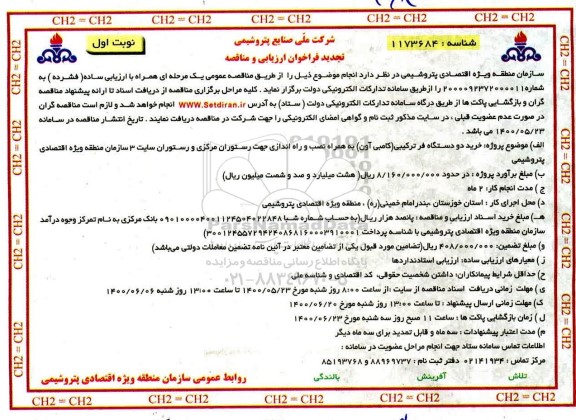 CH2 = CH2 CH2 = CH2 CH2 = CH2 CH2 = CH2 CH2 = CH2 CH2 = CH2
شناسه : ۱۱۷۳۶۸۴
شرکت ملّی صنایع پتروشیمی
نوبت اول
تجدید فراخوان ارزیابی و مناقصه
سازمان منطقه ویژه اقتصادی پتروشیمی در نظر دارد انجام موضوع ذیل را از طریق مناقصه عمومی یک مرحله ای همراه با ارزیابی ساده( فشرده ) به
شماره ۲۰۰۰۰۹۲۳۷۲۰۰۰۰۱۱ را از طریق سامانه تدارکات الکترونیکی دولت برگزار نماید . کلیه مراحل برگزاری مناقصه از دریافت اسناد تا ارائه پیشنهاد مناقصه
گران و بازگشایی پاکت ها از طریق درگاه سامانه تدارکات الکترونیکی دولت ( ستاد) به آدرس www.Setdiran.ir انجام خواهد شد و لازم است مناقصه گران
در صورت عدم عضویت قبلی ، در سایت مذکور ثبت نام و گواهی امضای الکترونیکی را جهت شرکت در مناقصه دریافت نمایند . تاریخ انتشار مناقصه در سامانه
۱۴۰۰/۰۵/۲۳ می باشد .
الف) موضوع پروژه: خرید دو دستگاه فر ترکیبی(کامبی آون) به همراه نصب و راه اندازی جهت رستوران مرکزی و رستوران سایت ۳ سازمان منطقه ویژه اقتصادی
پتروشیمی
ب) مبلغ برآورد پروژه : در حدود ۸/۱۶۰/۰۰۰/۰۰۰ ریال( هشت میلیارد و صد و شصت میلیون ریال)
ج ) مدت انجام کار: ۲ ماه
د) محل اجرای کار : استان خوزستان ،بندرامام خمینی(ره) ، منطقه ویژه اقتصادی پتروشیمی
هـ) مبلغ خرید اسناد ارزیابی و مناقصه : پانصد هزار ریال(به حساب شماره شبا بانک مرکزی به نام تمرکز وجوه درآمد
سازمان منطقه ویژه اقتصادی پتروشیمی با شناسه پرداخت
و) مبلغ تضمین: ۴۰۸/۰۰۰/۰۰۰ ریال(تضامین مورد قبول یکی از تضامین معتبر در آئین نامه تضمین معاملات دولتی می‌باشد)
ز ) معیارهای ارزیابی ساده: ارزیابی استانداردها
ح) حداقل شرایط پیمانکاران: داشتن شخصیت حقوقی، کد اقتصادی و شناسه ملی
ی) مهلت زمانی دریافت اسناد مناقصه از سایت :از ساعت ۸:۰۰ روز شنبه مورخ ۱۴۰۰/۰۵/۲۳ تا ساعت ۱۳:۰۰ روز شنبه ۱۴۰۰/۰۶/۰۶
ک) مهلت زمانی ارسال پیشنهاد : تا ساعت ۱۳:۰۰ روز شنبه مورخ ۱۴۰۰/۰۶/۲۰
ل ) زمان بازگشایی پاکت ها : ساعت ۱۱ صبح روز سه شنبه مورخ ۱۴۰۰/۰۶/۲۳
م) مدت اعتبار پیشنهادات : سه ماه و قابل تمدید برای سه ماه دیگر
اطلاعات تماس سامانه ستاد جهت انجام مراحل عضویت در سامانه :
مرکز تماس : ۰۲۱۴۱۹۳۴ دفتر ثبت نام : ۸۸۹۶۹۷۳۷ و ۸۵۱۹۳۷۶۸
تلاش آفرینش بالندگی
روابط عمومی سازمان منطقه ویژه اقتصادی پتروشیمی
ParsNamadData
پایگاه اطلاع رسانی مناقصه و مزایده
CH2 = CH2 CH2 = CH2 CH2 = CH2 CH2 = CH2 CH2 = CH2 CH2 = CH2